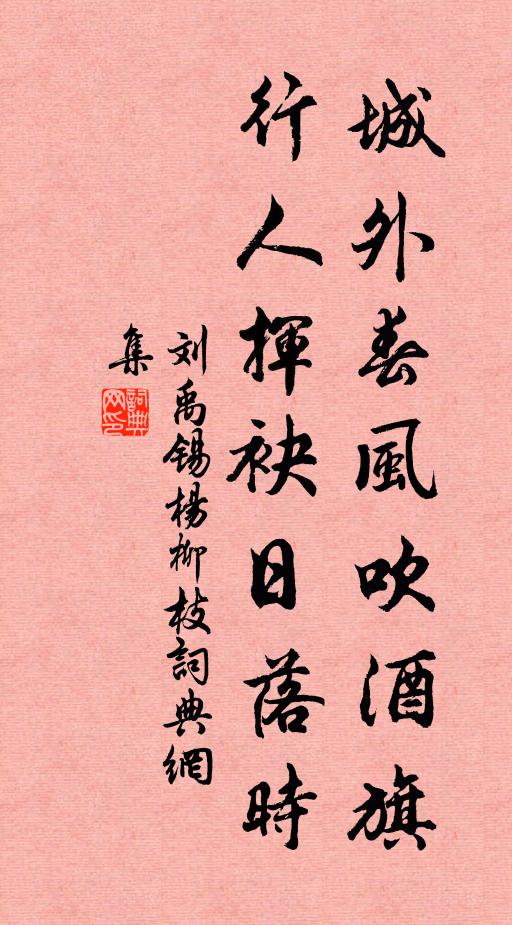 城外春風吹酒旗
行人揮袂日落時
刘禹锡杨柳枝詞典網
集
詞典
网印